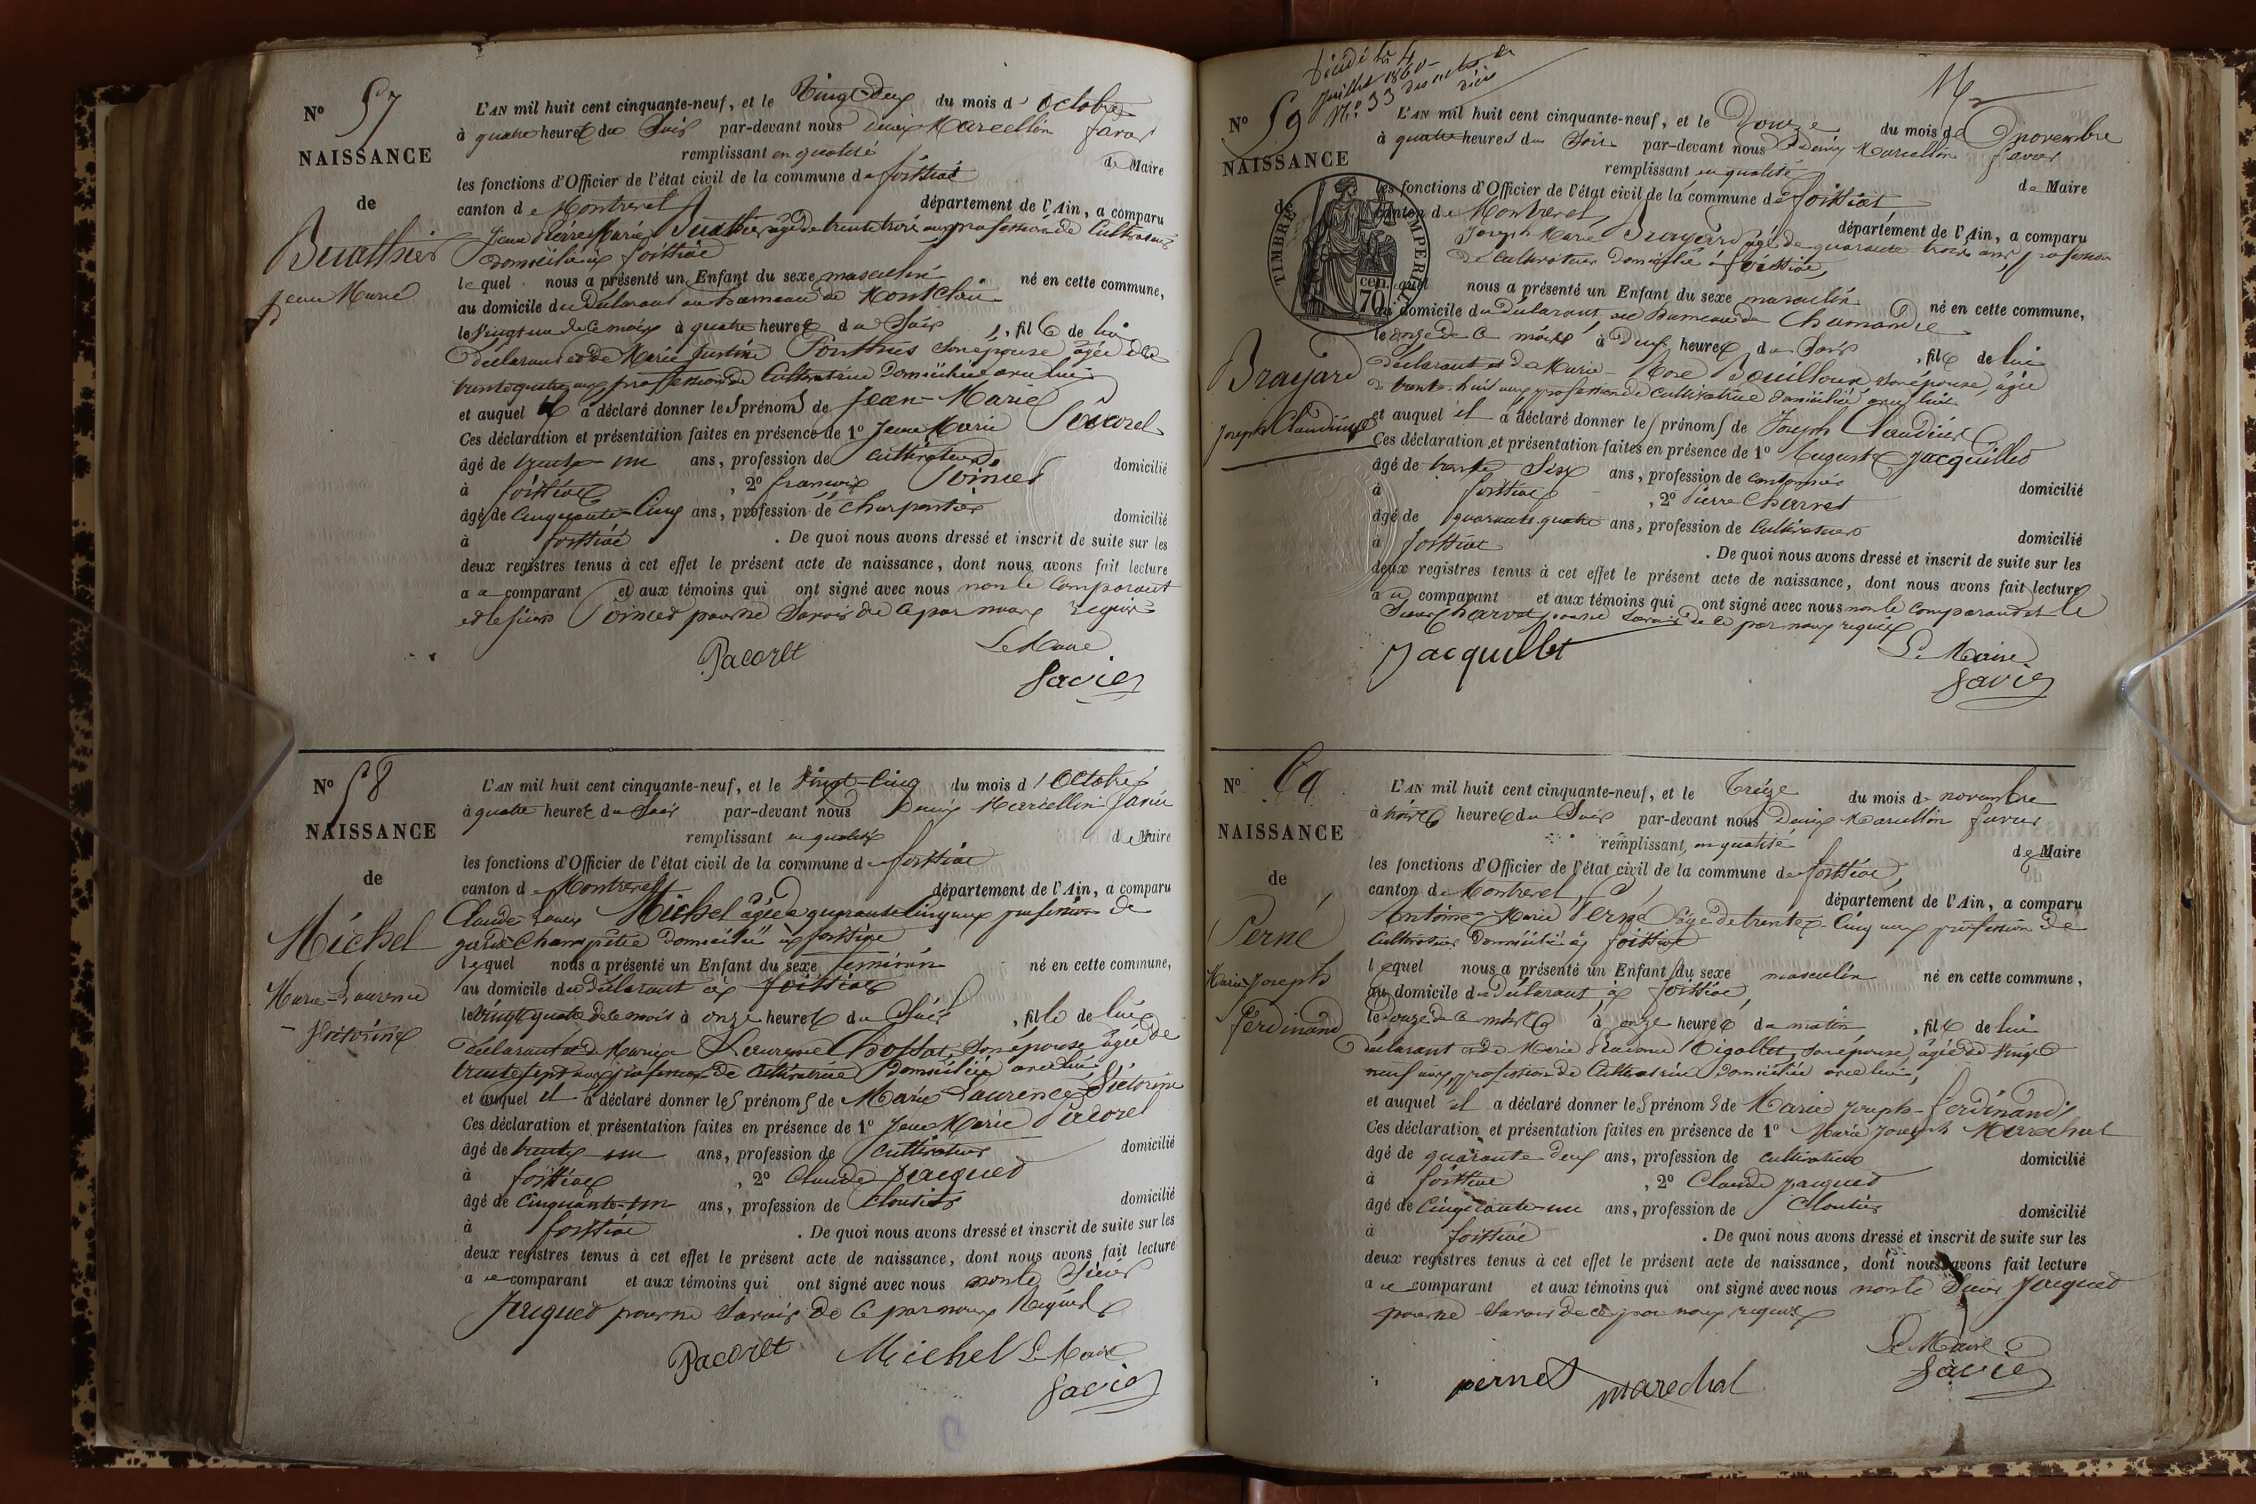 No 57
NAISSANCE
de
Buathier
Jean Marie
L'AN mil huit cent cinquante-neuf, et le Vingt-deux du mois d'octobre
à quatre heures du Soir par-devant nous Denis Marcellin favier
remplissant en qualité de Maire
les fonctions d'Officier de l'état civil de la commune de foissiat
canton de Montrevel département de l'Ain, a comparu
Jean Pierre Marie Buathier âgé de trente trois ans profession de Cultivateur
domicilié à foissiat
lequel nous a présenté un Enfant du sexe masculin né en cette commune,
au domicile du déclarant au hameau de Montclair
le Vingt un de ce mois à quatre heures du Soir, fils de lui
déclarant et de Marie Justine son épouse âgée de
trente quatre ans profession de Cultivatrice domiciliée avec lui
et auquel il a déclaré donner les prénoms de Jean-Marie
Ces déclaration et présentation faites en présence de 1o Jean Marie Pacoret
âgé de trente-un ans, profession de cultivateur domicilié
à foissiat, 2o francois Poinced
âgé de Cinquante-Cinq ans, profession de charpentier domicilié
à foissiat. De quoi nous avons dressé et inscrit de suite sur les
deux registres tenus à cet effet le présent acte de naissance, dont nous avons fait lecture
au comparant et aux témoins qui ont signé avec nous non le comparant
et le sieur Poinced pour ne savoir de ce par nous requis
Pacoret Le Maire
favier
No 58
NAISSANCE
de
Michel
Marie-Laurence
Victorine
L'AN mil huit cent cinquante-neuf, et le Vingt-Cinq du mois d'Octobre
à quatre heures du Soir par-devant nous Denis Marcellin favier
remplissant en qualité de Maire
les fonctions d'Officier de l'état civil de la commune de foissiat
canton de Montrevel département de l'Ain, a comparu
Claude Louis Michel âgé de quarante Cinq ans profession de
garde Champêtre domicilié à foissiat
lequel nous a présenté un Enfant du sexe feminin né en cette commune,
au domicile du déclarant à foissiat
le Vingt quatre de ce mois à onze heures du Soir, fille de lui
déclarant et de Marie Laurence son épouse âgée de
trente sept ans profession de Cultivatrice domiciliée avec lui
et auquel il a déclaré donner les prénoms de Marie Laurence Victorine
Ces déclaration et présentation faites en présence de 1o Jean Marie Pacoret
âgé de trente-un ans, profession de Cultivateur domicilié
à foissiat, 2o Claude Jacqued
âgé de Cinquante-un ans, profession de Cloutier domicilié
à foissiat. De quoi nous avons dressé et inscrit de suite sur les
deux registres tenus à cet effet le présent acte de naissance, dont nous avons fait lecture
au comparant et aux témoins qui ont signé avec nous non le Sieur
Jacqued pour ne savoir de ce par nous Requis
Pacoret Michel Le Maire
favier
Décédé le 4
Juillet 1860
No 33 des actes de
décès
No 59
NAISSANCE
de
TIMBRE IMPERIAL
70 cen.
Brayard
Joseph Claudius
L'AN mil huit cent cinquante-neuf, et le Douze du mois de novembre
à quatre heures du Soir par-devant nous Denis Marcellin favier
remplissant en qualité de Maire
les fonctions d'Officier de l'état civil de la commune de foissiat
canton de Montrevel département de l'Ain, a comparu
Joseph Marie Brayard âgé de quarante trois ans, profession
de Cultivateur domicilié à foissiat
lequel nous a présenté un Enfant du sexe masculin né en cette commune,
au domicile du déclarant au hameau de Chamandre
le onze de ce mois à Deux heures du Soir, fils de lui
déclarant et de Marie-Rose Bouilloux son épouse, âgée
de trente-huit ans profession de Cultivatrice domiciliée avec lui
et auquel il a déclaré donner les prénoms de Joseph Claudius
Ces déclaration et présentation faites en présence de 1o Auguste Jacquilled
âgé de trente Six ans, profession de cantonnier domicilié
à foissiat, 2o Pierre Charvet
âgé de quarante quatre ans, profession de Cultivateur domicilié
à foissiat. De quoi nous avons dressé et inscrit de suite sur les
deux registres tenus à cet effet le présent acte de naissance, dont nous avons fait lecture
au comparant et aux témoins qui ont signé avec nous non le comparant et le
Sieur Charvet pour ne savoir de ce par nous requis
Jacquillet Le Maire
favier
No 60
NAISSANCE
de
Perné
Marie Joseph
Ferdinand
L'AN mil huit cent cinquante-neuf, et le Treize du mois de novembre
à trois heures du Soir par-devant nous Denis Marcellin favier
remplissant en qualité de Maire
les fonctions d'Officier de l'état civil de la commune de foissiat
canton de Montrevel département de l'Ain, a comparu
Antoine Marie Perné âgé de trente-Cinq ans profession de
Cultivateur domicilié à foissiat
lequel nous a présenté un Enfant du sexe masculin né en cette commune,
au domicile du déclarant à foissiat
le onze de ce mois à onze heures du matin, fils de lui
déclarant et de Marie Rigollet, son épouse, âgée de Vingt
neuf ans, profession de Cultivatrice domiciliée avec lui,
et auquel il a déclaré donner les prénoms de Marie Joseph-Ferdinand
Ces déclaration et présentation faites en présence de 1o Marie Joseph Marechal
âgé de quarante deux ans, profession de cultivateur domicilié
à foissiat, 2o Claude Jacqued
âgé de Cinquante-un ans, profession de Cloutier domicilié
à foissiat. De quoi nous avons dressé et inscrit de suite sur les
deux registres tenus à cet effet le présent acte de naissance, dont nous avons fait lecture
au comparant et aux témoins qui ont signé avec nous non le Sieur Jacqued
pour ne savoir de ce par nous requis
Le Maire
pernet marechal favier